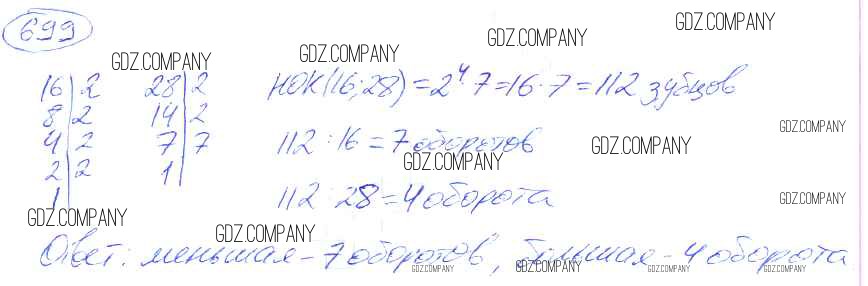 699
GDZ.COMPANY
GDZ.COMPANY GDZ.COMPANY GDZ.COMPANY
16 | 2 28 | 2 НОК(16;28) = 2⁴·7=16·7=112 зубцов
8 | 2 14 | 2
GDZ.COMPANY
4 | 2 7 | 7 112 : 16 = 7 оборотов
GDZ.COMPANY GDZ.COMPANY
2 | 2 1
1 112 : 28 = 4 оборота
GDZ.COMPANY
GDZ.COMPANY
GDZ.COMPANY
Ответ: меньшая - 7 оборотов, большая - 4 оборота
GDZ.COMPANY GDZ.COMPANY GDZ.COMPANY GDZ.COMPANY